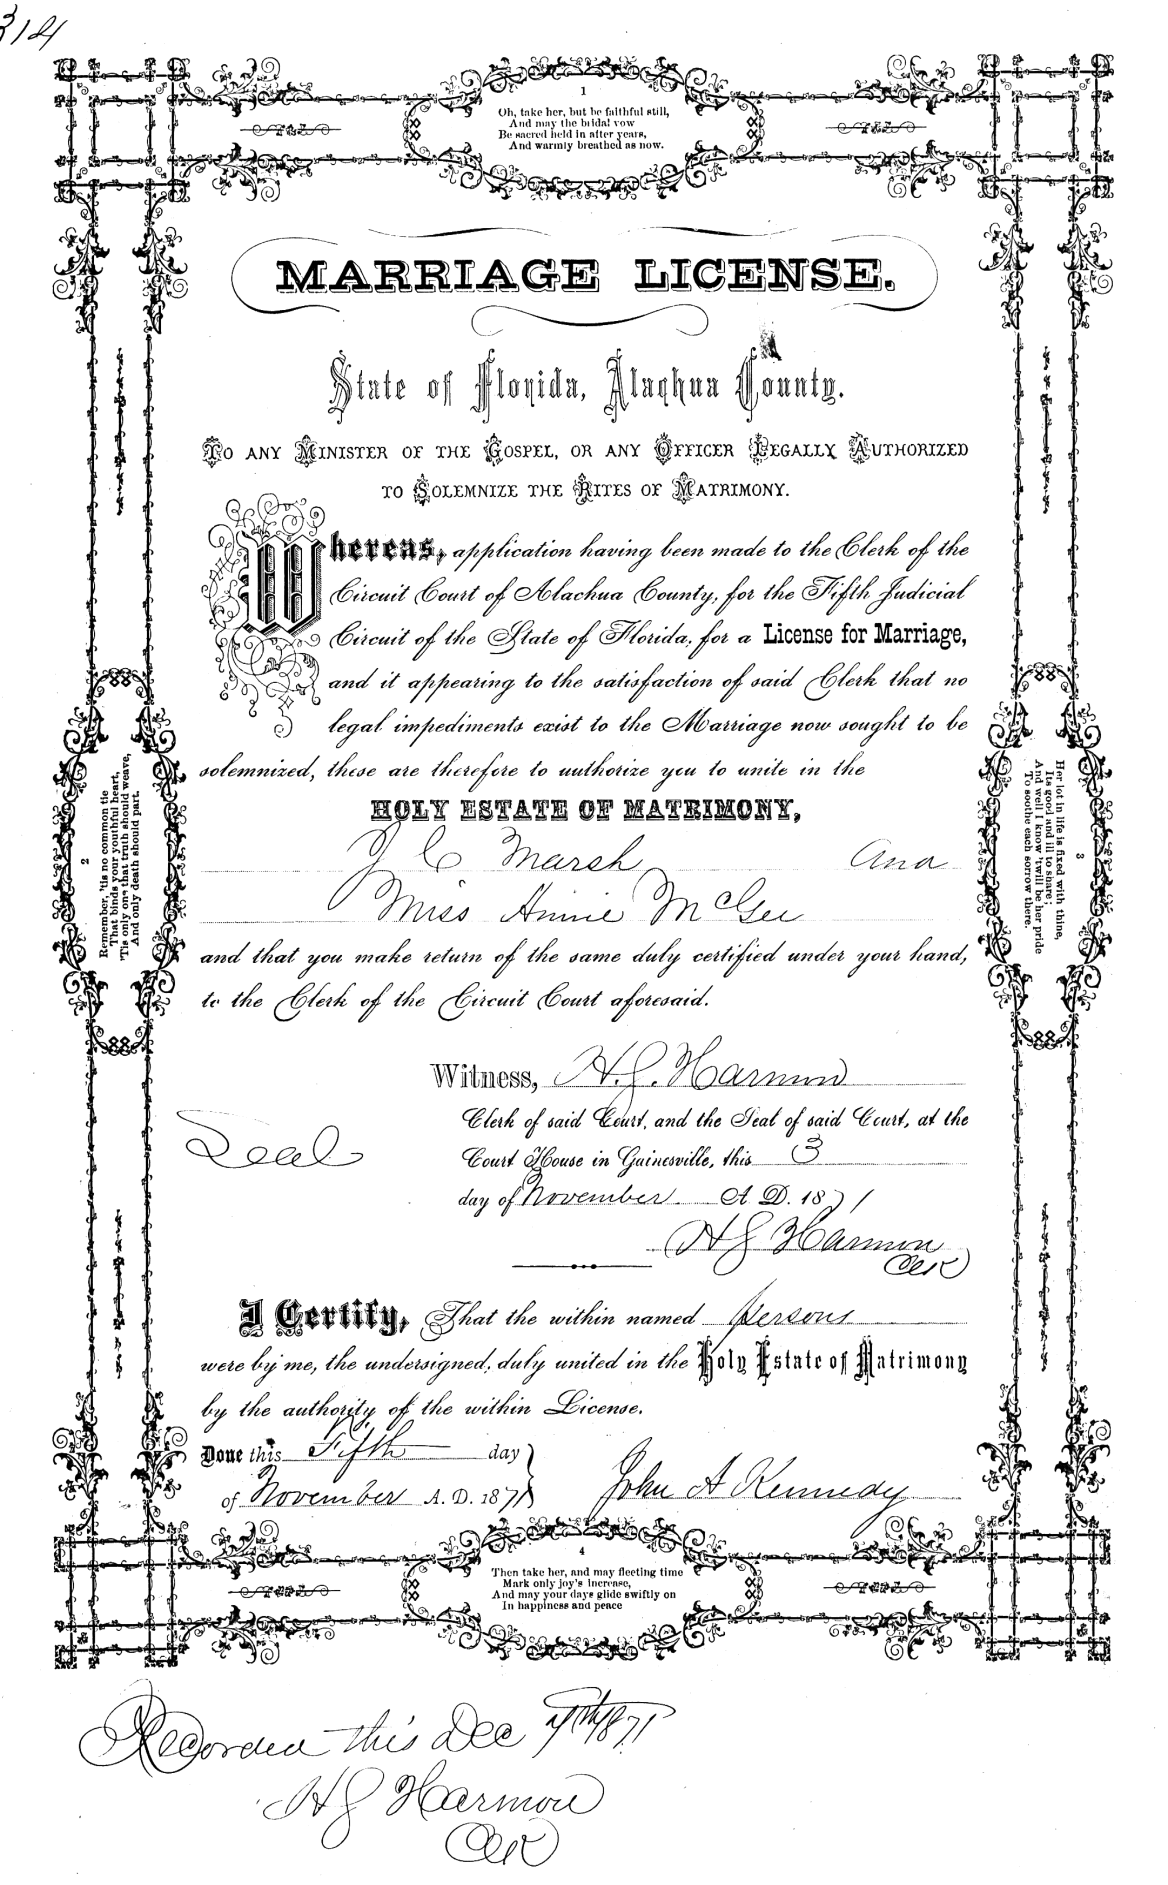 314
1
Oh, take her, but be faithful still,
And may the bridal vow
Be sacred held in after years,
And warmly breathed as now.
MARRIAGE LICENSE.
State of Florida, Alachua County.
TO ANY MINISTER OF THE GOSPEL, OR ANY OFFICER LEGALLY AUTHORIZED
TO SOLEMNIZE THE RITES OF MATRIMONY.
Whereas, application having been made to the Clerk of the
Circuit Court of Alachua County, for the Fifth Judicial
Circuit of the State of Florida, for a License for Marriage,
and it appearing to the satisfaction of said Clerk that no
legal impediments exist to the Marriage now sought to be
solemnized, these are therefore to authorize you to unite in the
HOLY ESTATE OF MATRIMONY,
J C Marsh And
Miss Annie McGee
and that you make return of the same duly certified under your hand,
to the Clerk of the Circuit Court aforesaid.
Witness, H. J. Harmon
Clerk of said Court, and the Seal of said Court, at the
Court House in Gainesville, this 3
day of November A. D. 1871
Seal
H J Harmon
Clk
I Certify, That the within named persons
were by me, the undersigned, duly united in the Holy Estate of Matrimony
by the authority of the within License.
Done this Fifth day
of November A. D. 1871
John A Kennedy
2
Remember, 'tis no common tie
That binds your youthful heart,
'Tis only one that truth should weave,
And only death should part.
3
Her lot in life is fixed with thine,
Its good and ill to share;
And well I know 'twill be her pride
To soothe each sorrow there.
4
Then take her, and may fleeting time
Mark only joy's increase,
And may your days glide swiftly on
In happiness and peace
Recorded this Dec 7th 1871
H J Harmon
Clk